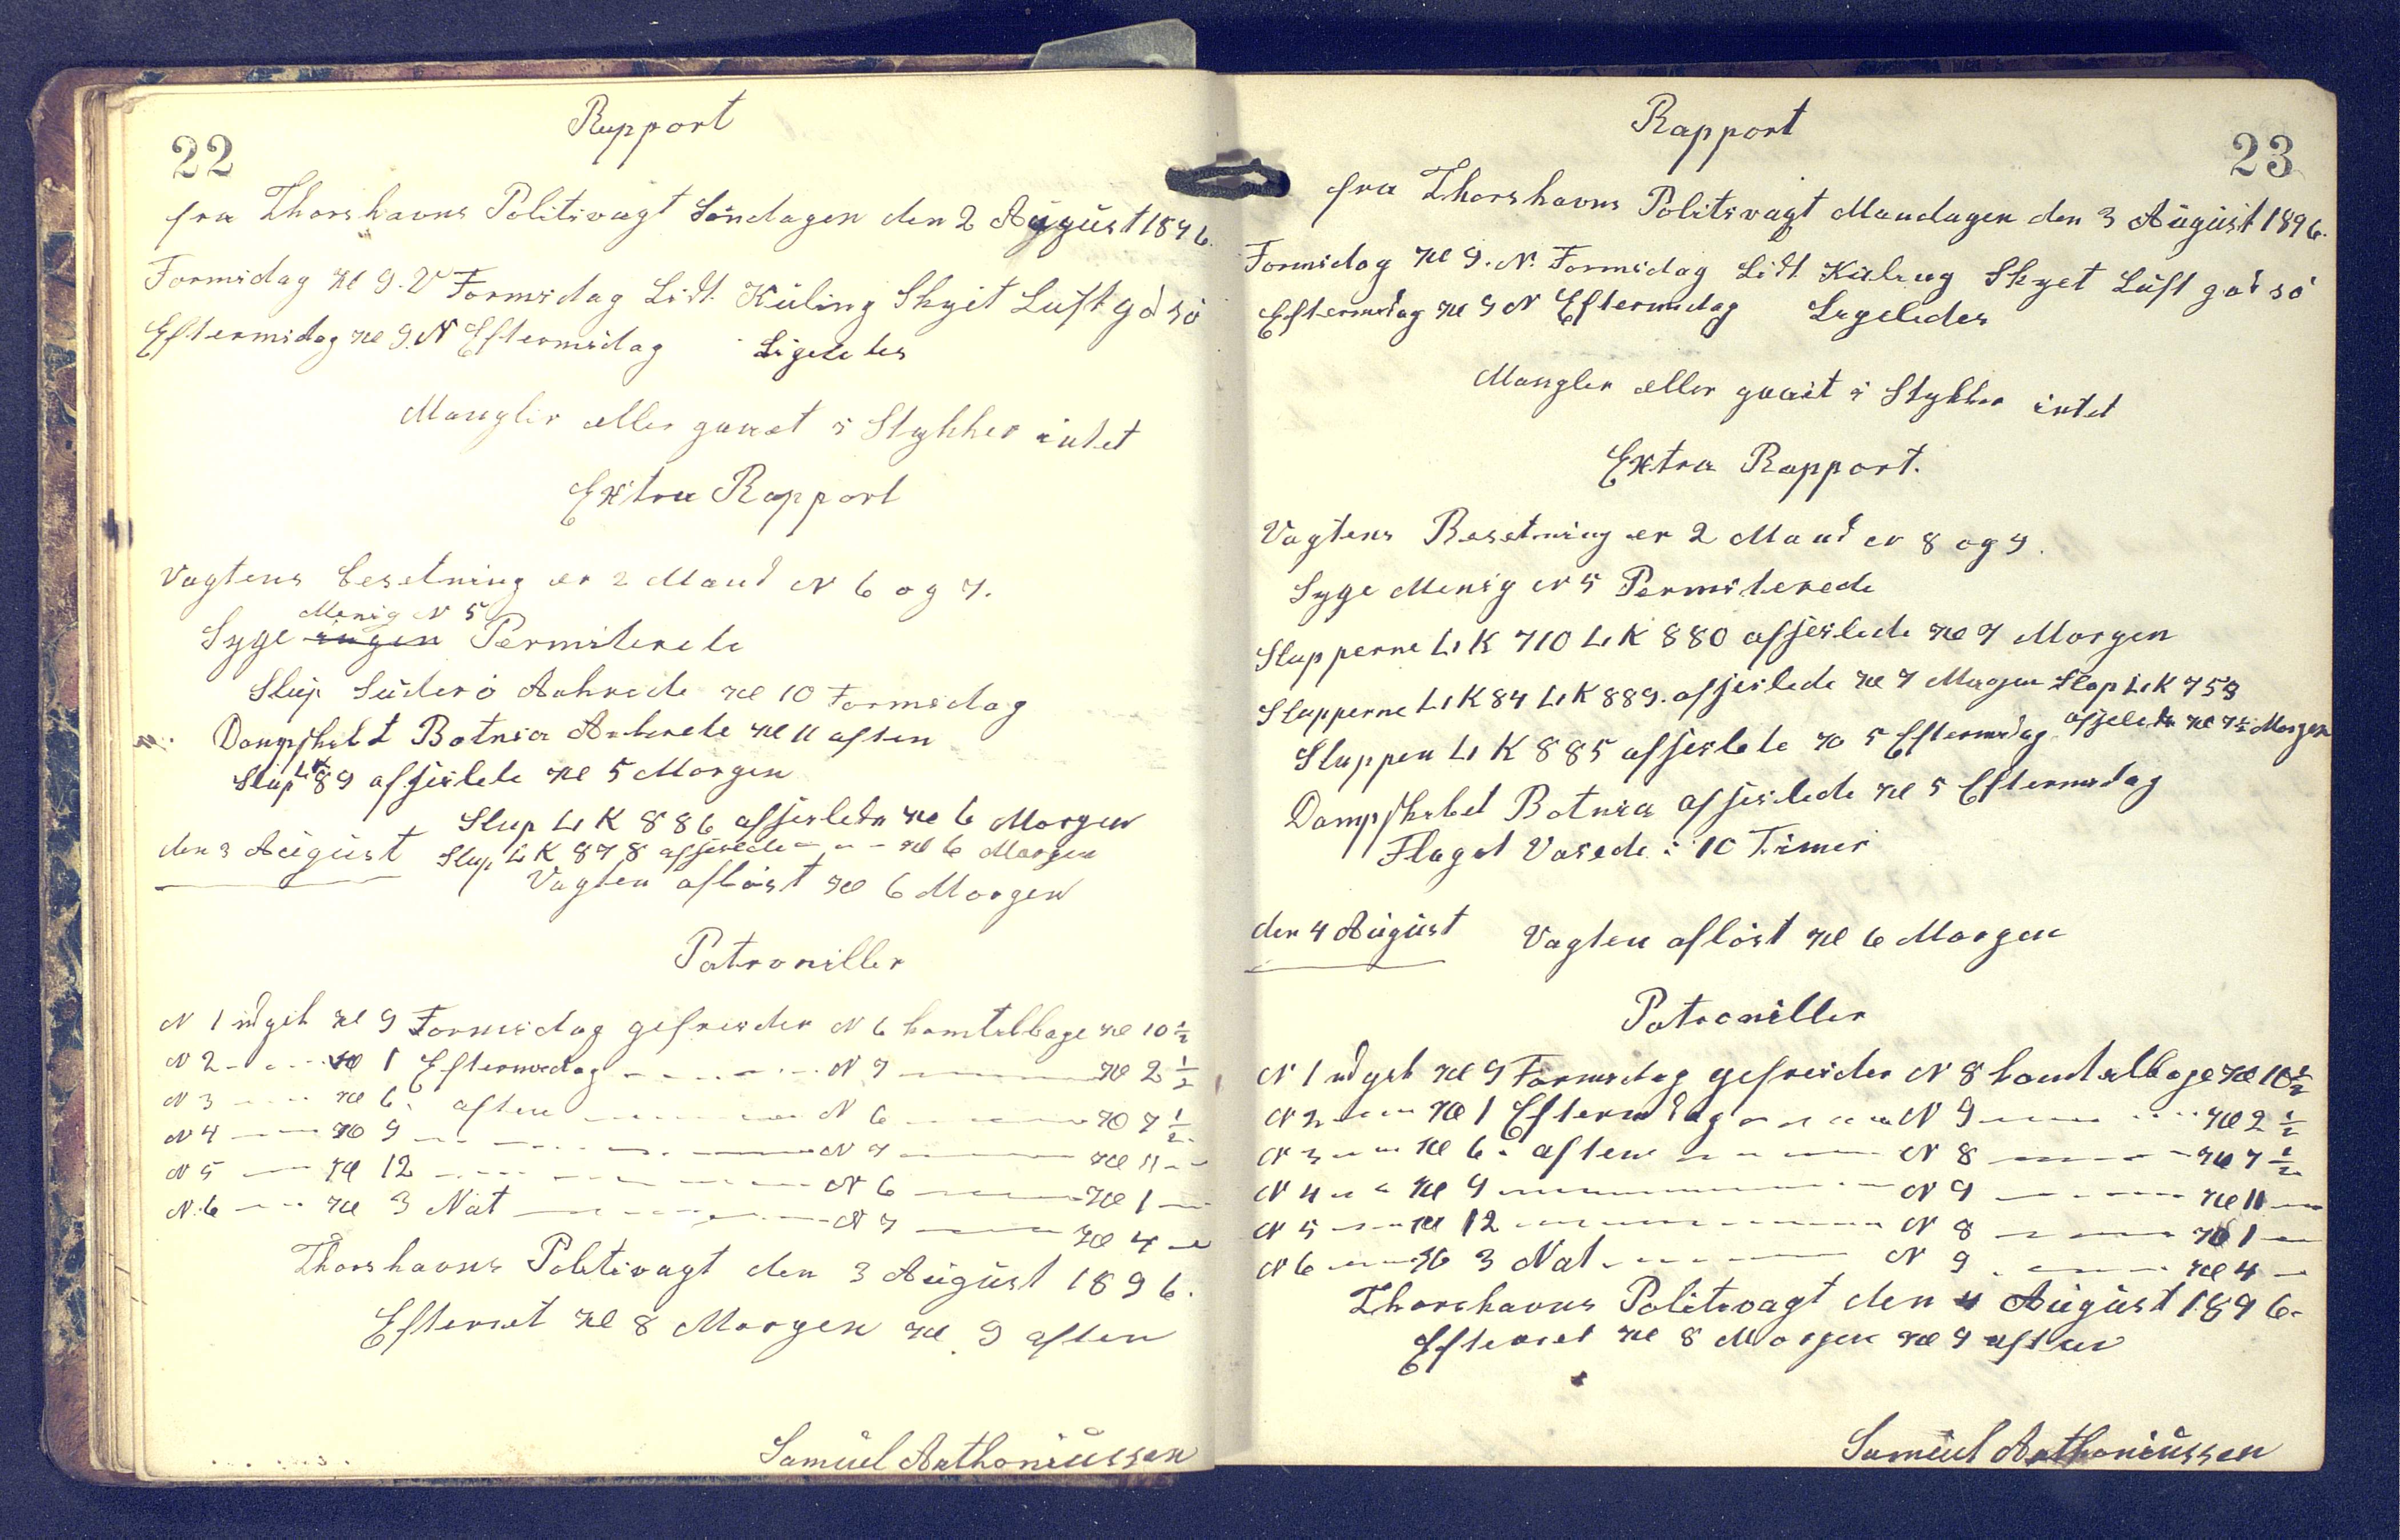 22
Rapport
fra Thorshavns Politivagt Söndagen den 2 August 1896.
Formidag Kl 9. V Formidag Lidt Küling Skyet Luft god sö
Eftermidag Kl 9. N Eftermidag Ligeledes
Mangler eller gaaet i Stykker intet
Extra Rapport
Vagtens besetning er 2 Mand N 6 og 7.
Menig N 5
Syge ingen Permiterede
Slup Süderö Ankrede Kl 10 Formidag
Dampskibet Botnia Ankrede Kl 11 aften
Slup LK 89 afseilede Kl 5 Morgen
Slup LK 886 afseilede Kl 6 Morgen
den 3 August Slup LK 878 afseilede - - - Kl 6 Morgen
Vagten aflöst Kl 6 Morgen
Patroniller
N 1 udgik Kl 9 Formidag gefreider N 6 kom tilbage Kl 10 1/2
N 2 - - - Kl 1 Eftermidag - - - - - N 7 - - - Kl 2 1/2
N 3 - - - Kl 6. aften - - - - - N 6 - - - Kl 7 1/2
N 4 - - - Kl 9 - - - - - N 7 - - - Kl 11 - -
N 5 - - - Kl 12 - - - - - N 6 - - - Kl 1 - -
N. 6 - - - Kl 3 Nat - - - - - N 7 - - - Kl 4 - -
Thorshavns Politivagt den 3 August 1896.
Efterset Kl 8 Morgen Kl. 9 aften
Samüel Anthoniüssen
23
Rapport
fra Thorshavns Politivagt Mandagen den 3 August 1896.
Formidag Kl 9. N. Formidag Lidt Küling Skyet Luft god sö
Eftermidag Kl 9 N Eftermidag Ligeledes
Mangler eller gaait i Stykker intet
Extra Rapport.
Vagtens Besetning er 2 Mand N 8 og 9.
Syge Menig N 5 Permiterede
Slupperne LK 710 LK 880 afseilede Kl 7 Morgen
Slupperne LK 84 LK 889. afseilede Kl 7 Morgen Slup LK 753
afseilede Kl 7 1/2 Morgen
Sluppen LK 885 afseilede Kl 5 Eftermidag
Dampskibet Botnia afseilede Kl 5 Eftermidag
Flaget Vaiede i 10 Timer
den 4 August Vagten aflöst Kl 6 Morgen
Patroniller
N 1 udgik Kl 9 Formidag gefreider N 8 kom tilbage Kl 10 1/2
N 2 - - - Kl 1 Eftermidag - - - - - N 9 - - - Kl 2 1/2
N 3 - - - Kl 6. aften - - - - - N 8 - - - Kl 7 1/2
N 4 - - - Kl 9 - - - - - N 9 - - - Kl 11 - -
N 5 - - - Kl 12 - - - - - N 8 - - - Kl 1 - -
N 6 - - - Kl 3 Nat - - - - - N 9 - - - Kl 4 - -
Thorshavns Politivagt den 4 August 1896.
Efterset Kl 8 Morgen Kl 9 aften
Samüel Anthoniüssen